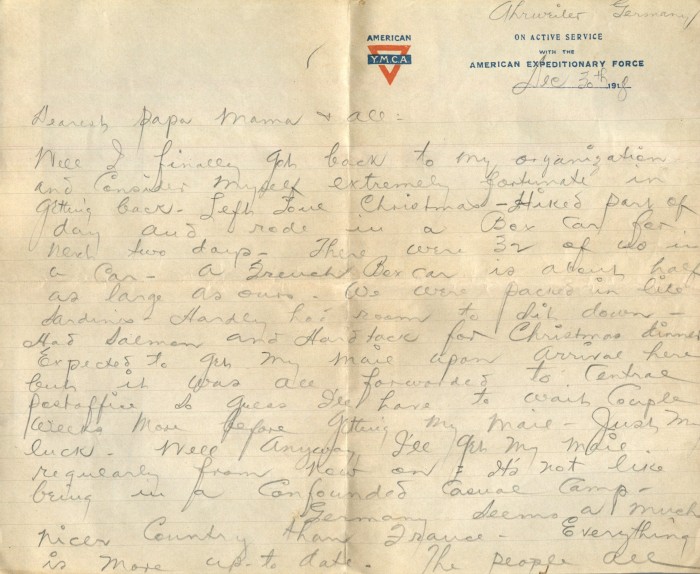 Ahrweiler Germany
AMERICAN
Y.M.C.A.
ON ACTIVE SERVICE
WITH THE
AMERICAN EXPEDITIONARY FORCE
Dec 30th 1918
Dearest Papa Mama & all:
Well I finally got back to my organization
and Consider Myself extremely fortunate in
getting back - Left Toul Christmas - Hiked part of
day and rode in a Box Car for
next two days - There were 32 of us in
a Car - A French Box car is about half
as large as ours. We were packed in like
Sardines - Hardly had room to sit down -
Had Salmon and Hardtack for Christmas dinner
Expected to get my mail upon arrival here
but it was all forwarded to Central
postoffice so guess I'll have to wait Couple
weeks More before getting My Mail - Just My
luck - Well Anyway I'll get My Mail
regularly from now on & It's not like
being in a Confounded Casual Camp -
Germany seems a much
nicer Country than France - Everything
is more up-to date. The people all